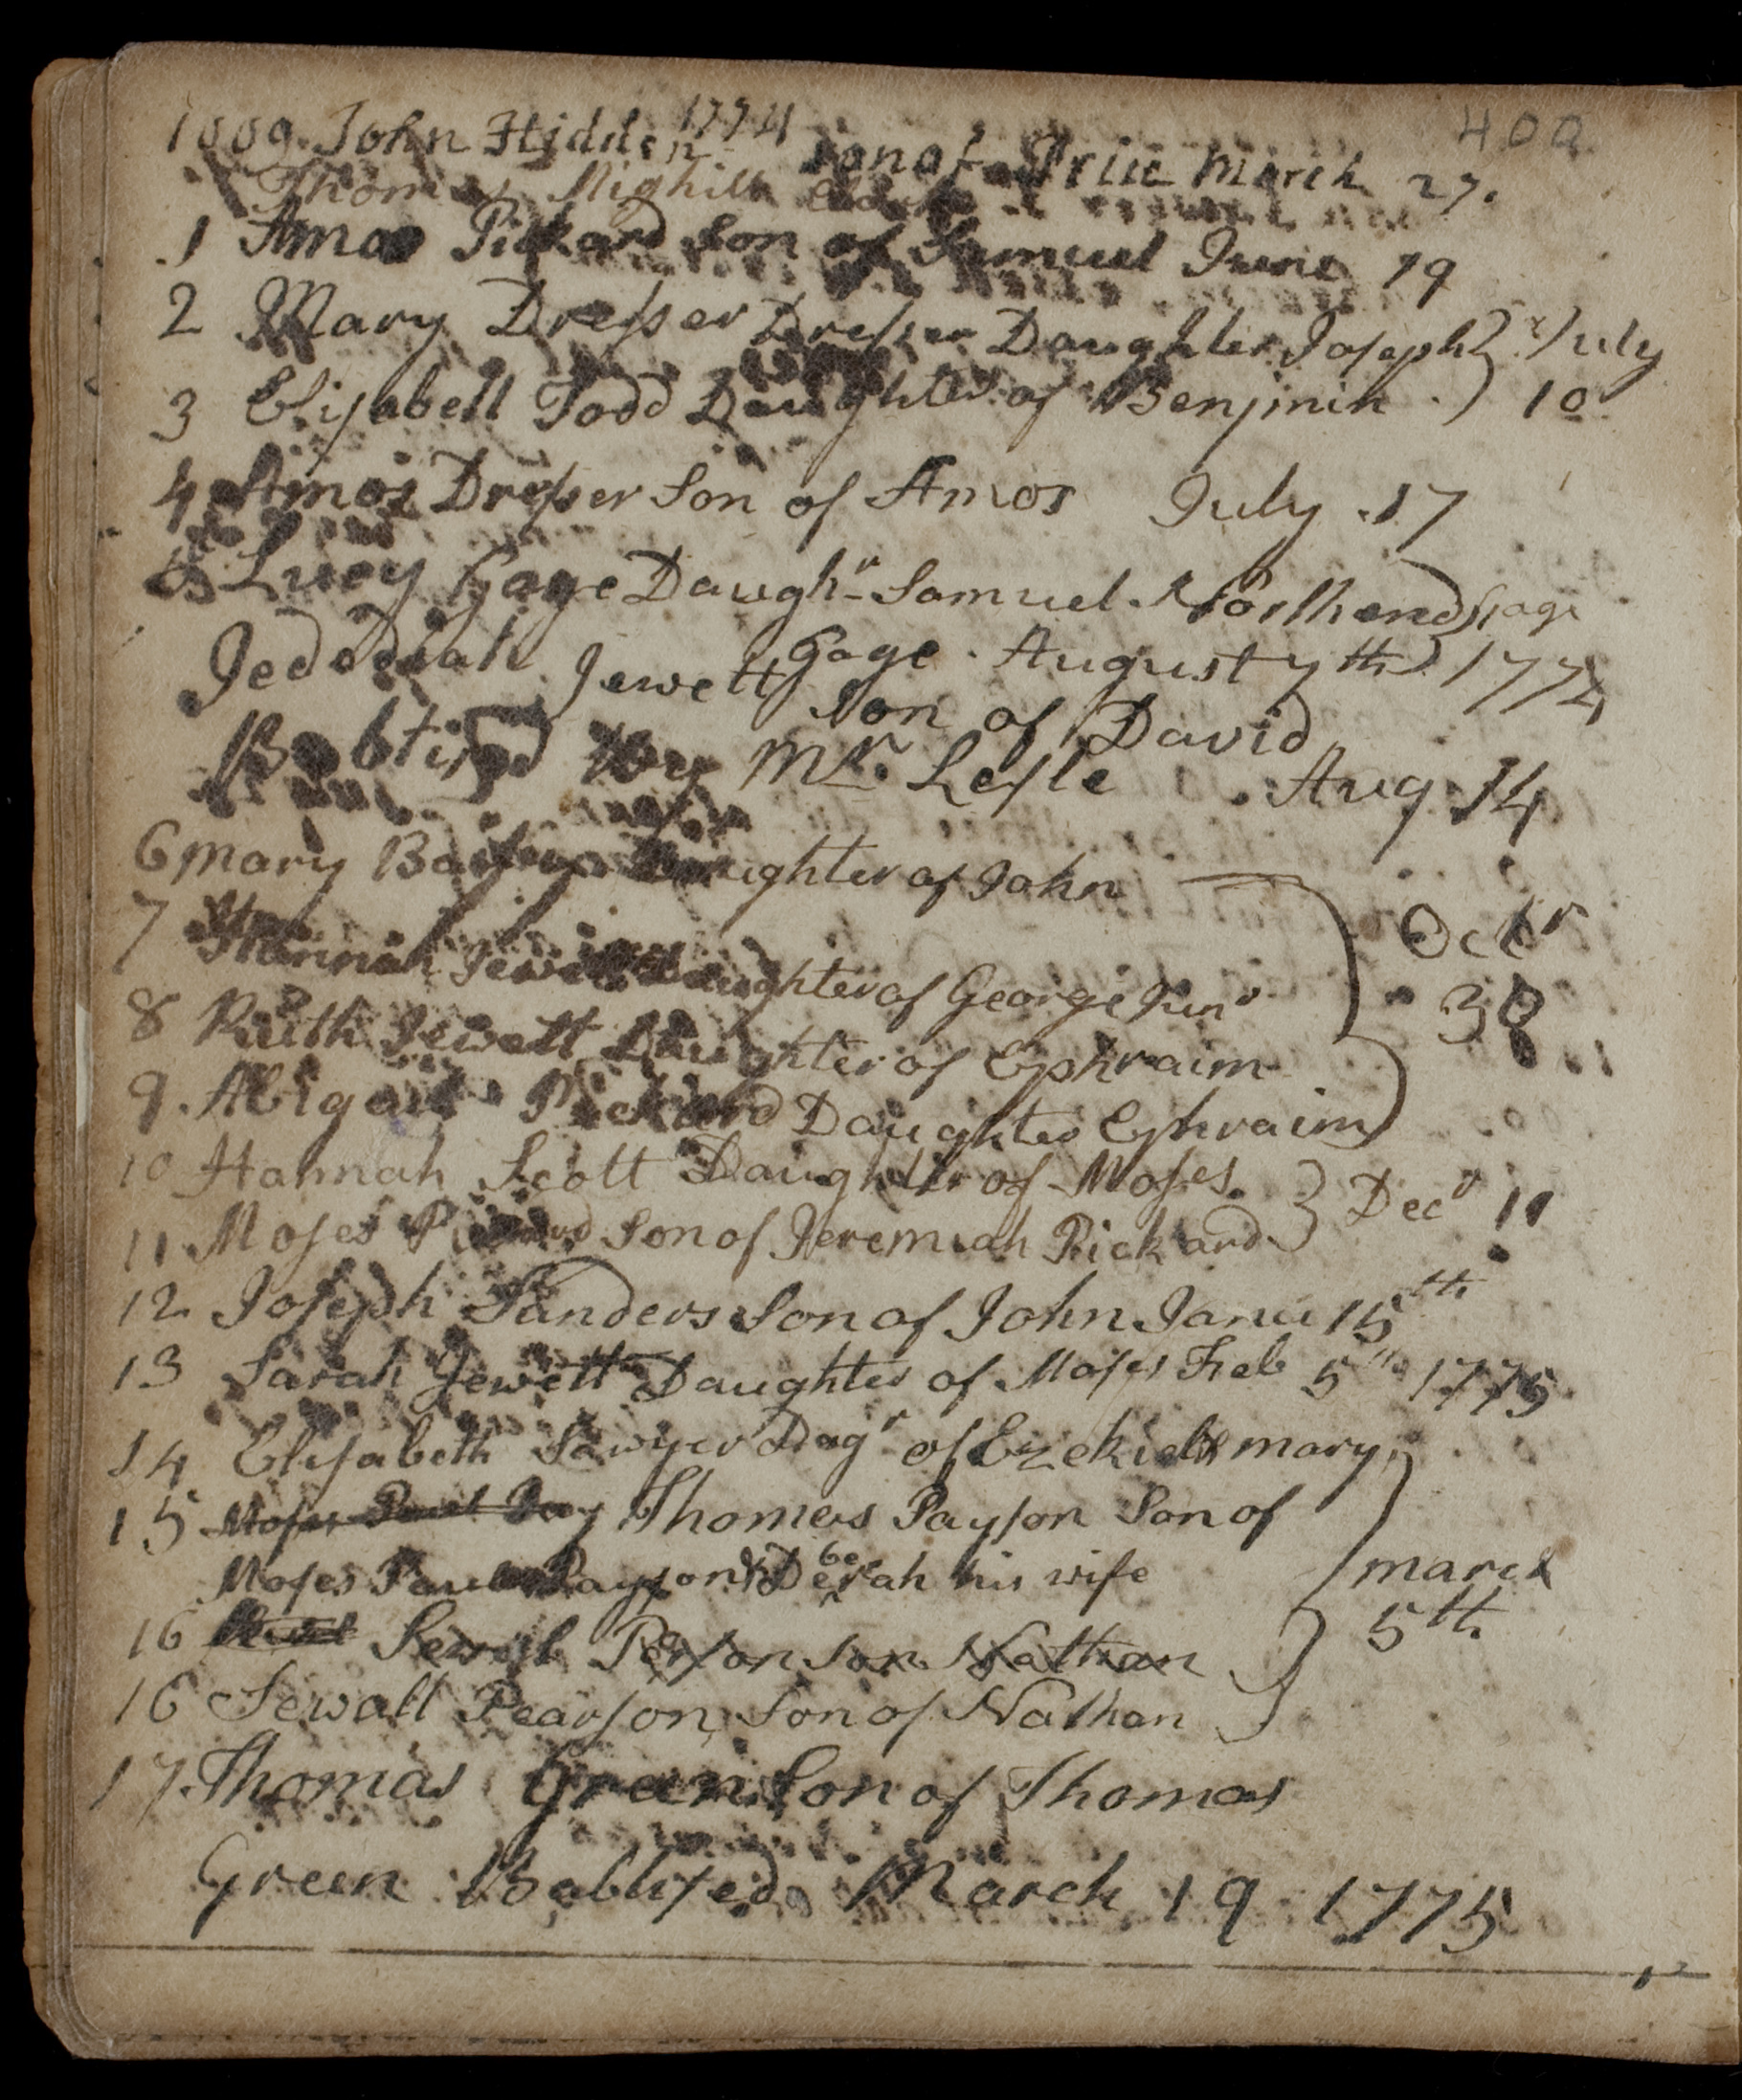 40a
1774
1009. John Hidden son of Price March 27.
Thomas Mighill
1 Amos Pickard Son of Samuel June 19
2 Mary Dresser Dresser Daughter Joseph } July
3 Elisabett Todd Daughter of Benjmin . } 10
4 Amos Dresser Son of Amos July . 17
5 Lucy Gage Daughr Samuel Northend Gage
Gage . August 7th 1774
Jededeiah Jewett Son of David
Babtised by Mr. Lesle . Aug 14
6 mary Daughter of John
7 Hannah Jewett Daughter of George Junr } Octr
8 Ruth Jewett Daughter of Ephraim } 30
9. Abigail Pickard Daughter Ephraim }
10 Hannah Scott Daughter of Moses } Decr 11
11 Moses Pickard Son of Jeremiah Pickard }
12 Joseph Sanders Son of John Janu 15th
13 Sarah Jewett Daughter of Moses Feb 5th 1775
14 Elisabeth Sawyer Dagr of Ezekiel & mary
15 Moses Paul Pay Thomas Payson Son of
Moses Paul Payson & Deberah his wife } march
16 Sewall Person Son Nathan } 5th
16 Sewall Pearson Son of Nathan
17. Thomas Green Son of Thomas
Green Babtised March 19 1775